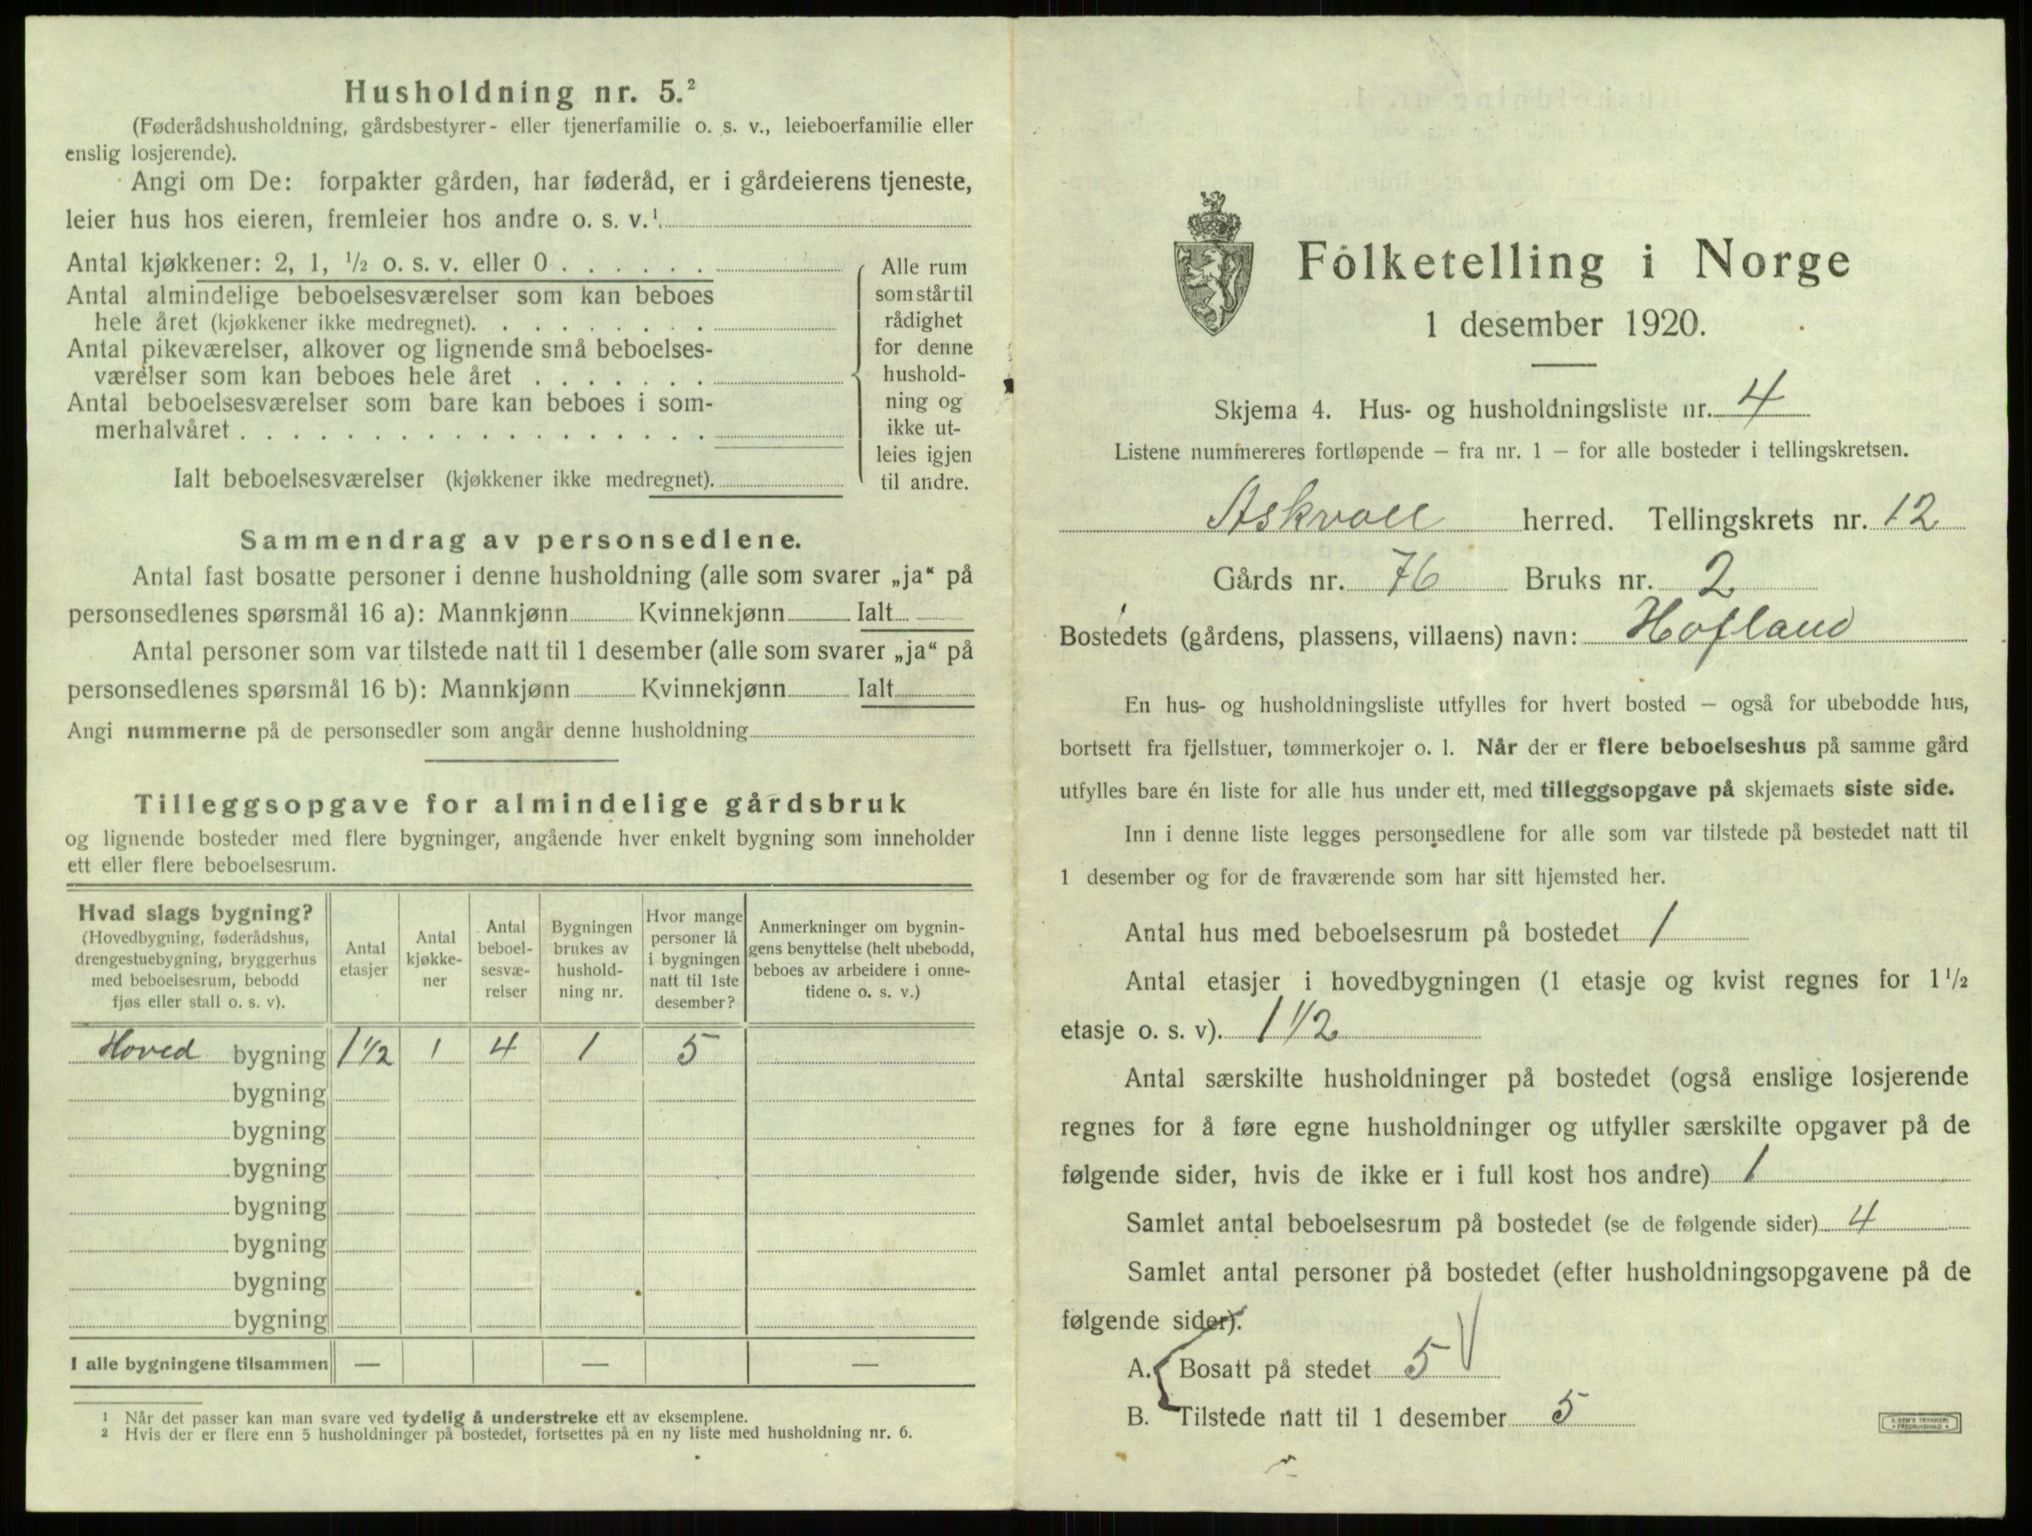 Husholdning nr. 5.²
(Føderådshusholdning, gårdsbestyrer- eller tjenerfamilie o. s. v., leieboerfamilie eller
enslig losjerende).
Angi om De: forpakter gården, har føderåd, er i gårdeierens tjeneste,
leier hus hos eieren, fremleier hos andre o. s. v.¹
Antal kjøkkener: 2, 1, ½ o. s. v. eller 0 . . . . . .
Antal almindelige beboelsesværelser som kan beboes
hele året (kjøkkener ikke medregnet). . . . . . . . .
Antal pikeværelser, alkover og lignende små beboelses-
værelser som kan beboes hele året . . . . . . .
Antal beboelsesværelser som bare kan beboes i som-
merhalvåret . . . . . . . . . . . . . . . . . .
Ialt beboelsesværelser (kjøkkener ikke medregnet).
Alle rum
som står til
rådighet
for denne
hushold-
ning og
ikke ut-
leies igjen
til andre.
Sammendrag av personsedlene.
Antal fast bosatte personer i denne husholdning (alle som svarer „ja“ på
personsedlenes spørsmål 16 a): Mannkjønn Kvinnekjønn Ialt
Antal personer som var tilstede natt til 1 desember (alle som svarer „ja“ på
personsedlenes spørsmål 16 b): Mannkjønn Kvinnekjønn Ialt
Angi nummerne på de personsedler som angår denne husholdning
Tilleggsopgave for almindelige gårdsbruk
og lignende bosteder med flere bygninger, angående hver enkelt bygning som inneholder
ett eller flere beboelsesrum.
Hvad slags bygning?
(Hovedbygning, føderådshus,
drengestuebygning, bryggerhus
med beboelsesrum, bebodd
fjøs eller stall o. s. v).
Antal
etasjer
Antal
kjøkke-
ner
Antal
beboel-
sesvæ-
relser
Bygningen
brukes av
hushold-
ning nr.
Hvor mange
personer lå
i bygningen
natt til 1ste
desember?
Anmerkninger om bygnin-
gens benyttelse (helt ubebodd,
beboes av arbeidere i onne-
tidene o. s. v.)
Hoved bygning 1 ½ 1 4 1 5
bygning
bygning
bygning
bygning
bygning
bygning
bygning
I alle bygningene tilsammen — — —
¹ Når det passer kan man svare ved tydelig å understreke ett av eksemplene.
² Hvis der er flere enn 5 husholdninger på bostedet, fortsettes på en ny liste med husholdning nr. 6.
Folketelling i Norge
1 desember 1920.
Skjema 4. Hus- og husholdningsliste nr. 4
Listene nummereres fortløpende – fra nr. 1 – for alle bosteder i tellingskretsen.
Askvoll herred. Tellingskrets nr. 12
Gårds nr. 76 Bruks nr. 2
Bostedets (gårdens, plassens, villaens) navn: Hofland
En hus- og husholdningsliste utfylles for hvert bosted – også for ubebodde hus,
bortsett fra fjellstuer, tømmerkojer o. l. Når der er flere beboelseshus på samme gård
utfylles bare én liste for alle hus under ett, med tilleggsopgave på skjemaets siste side.
Inn i denne liste legges personsedlene for alle som var tilstede på bostedet natt til
1 desember og for de fraværende som har sitt hjemsted her.
Antal hus med beboelsesrum på bostedet 1
Antal etasjer i hovedbygningen (1 etasje og kvist regnes for 1 ½
etasje o. s. v). 1 ½
Antal særskilte husholdninger på bostedet (også enslige losjerende
regnes for å føre egne husholdninger og utfyller særskilte opgaver på de
følgende sider, hvis de ikke er i full kost hos andre) 1
Samlet antal beboelsesrum på bostedet (se de følgende sider) 4
Samlet antal personer på bostedet (efter husholdningsopgavene på de
følgende sider).
A. Bosatt på stedet 5
B. Tilstede natt til 1 desember 5